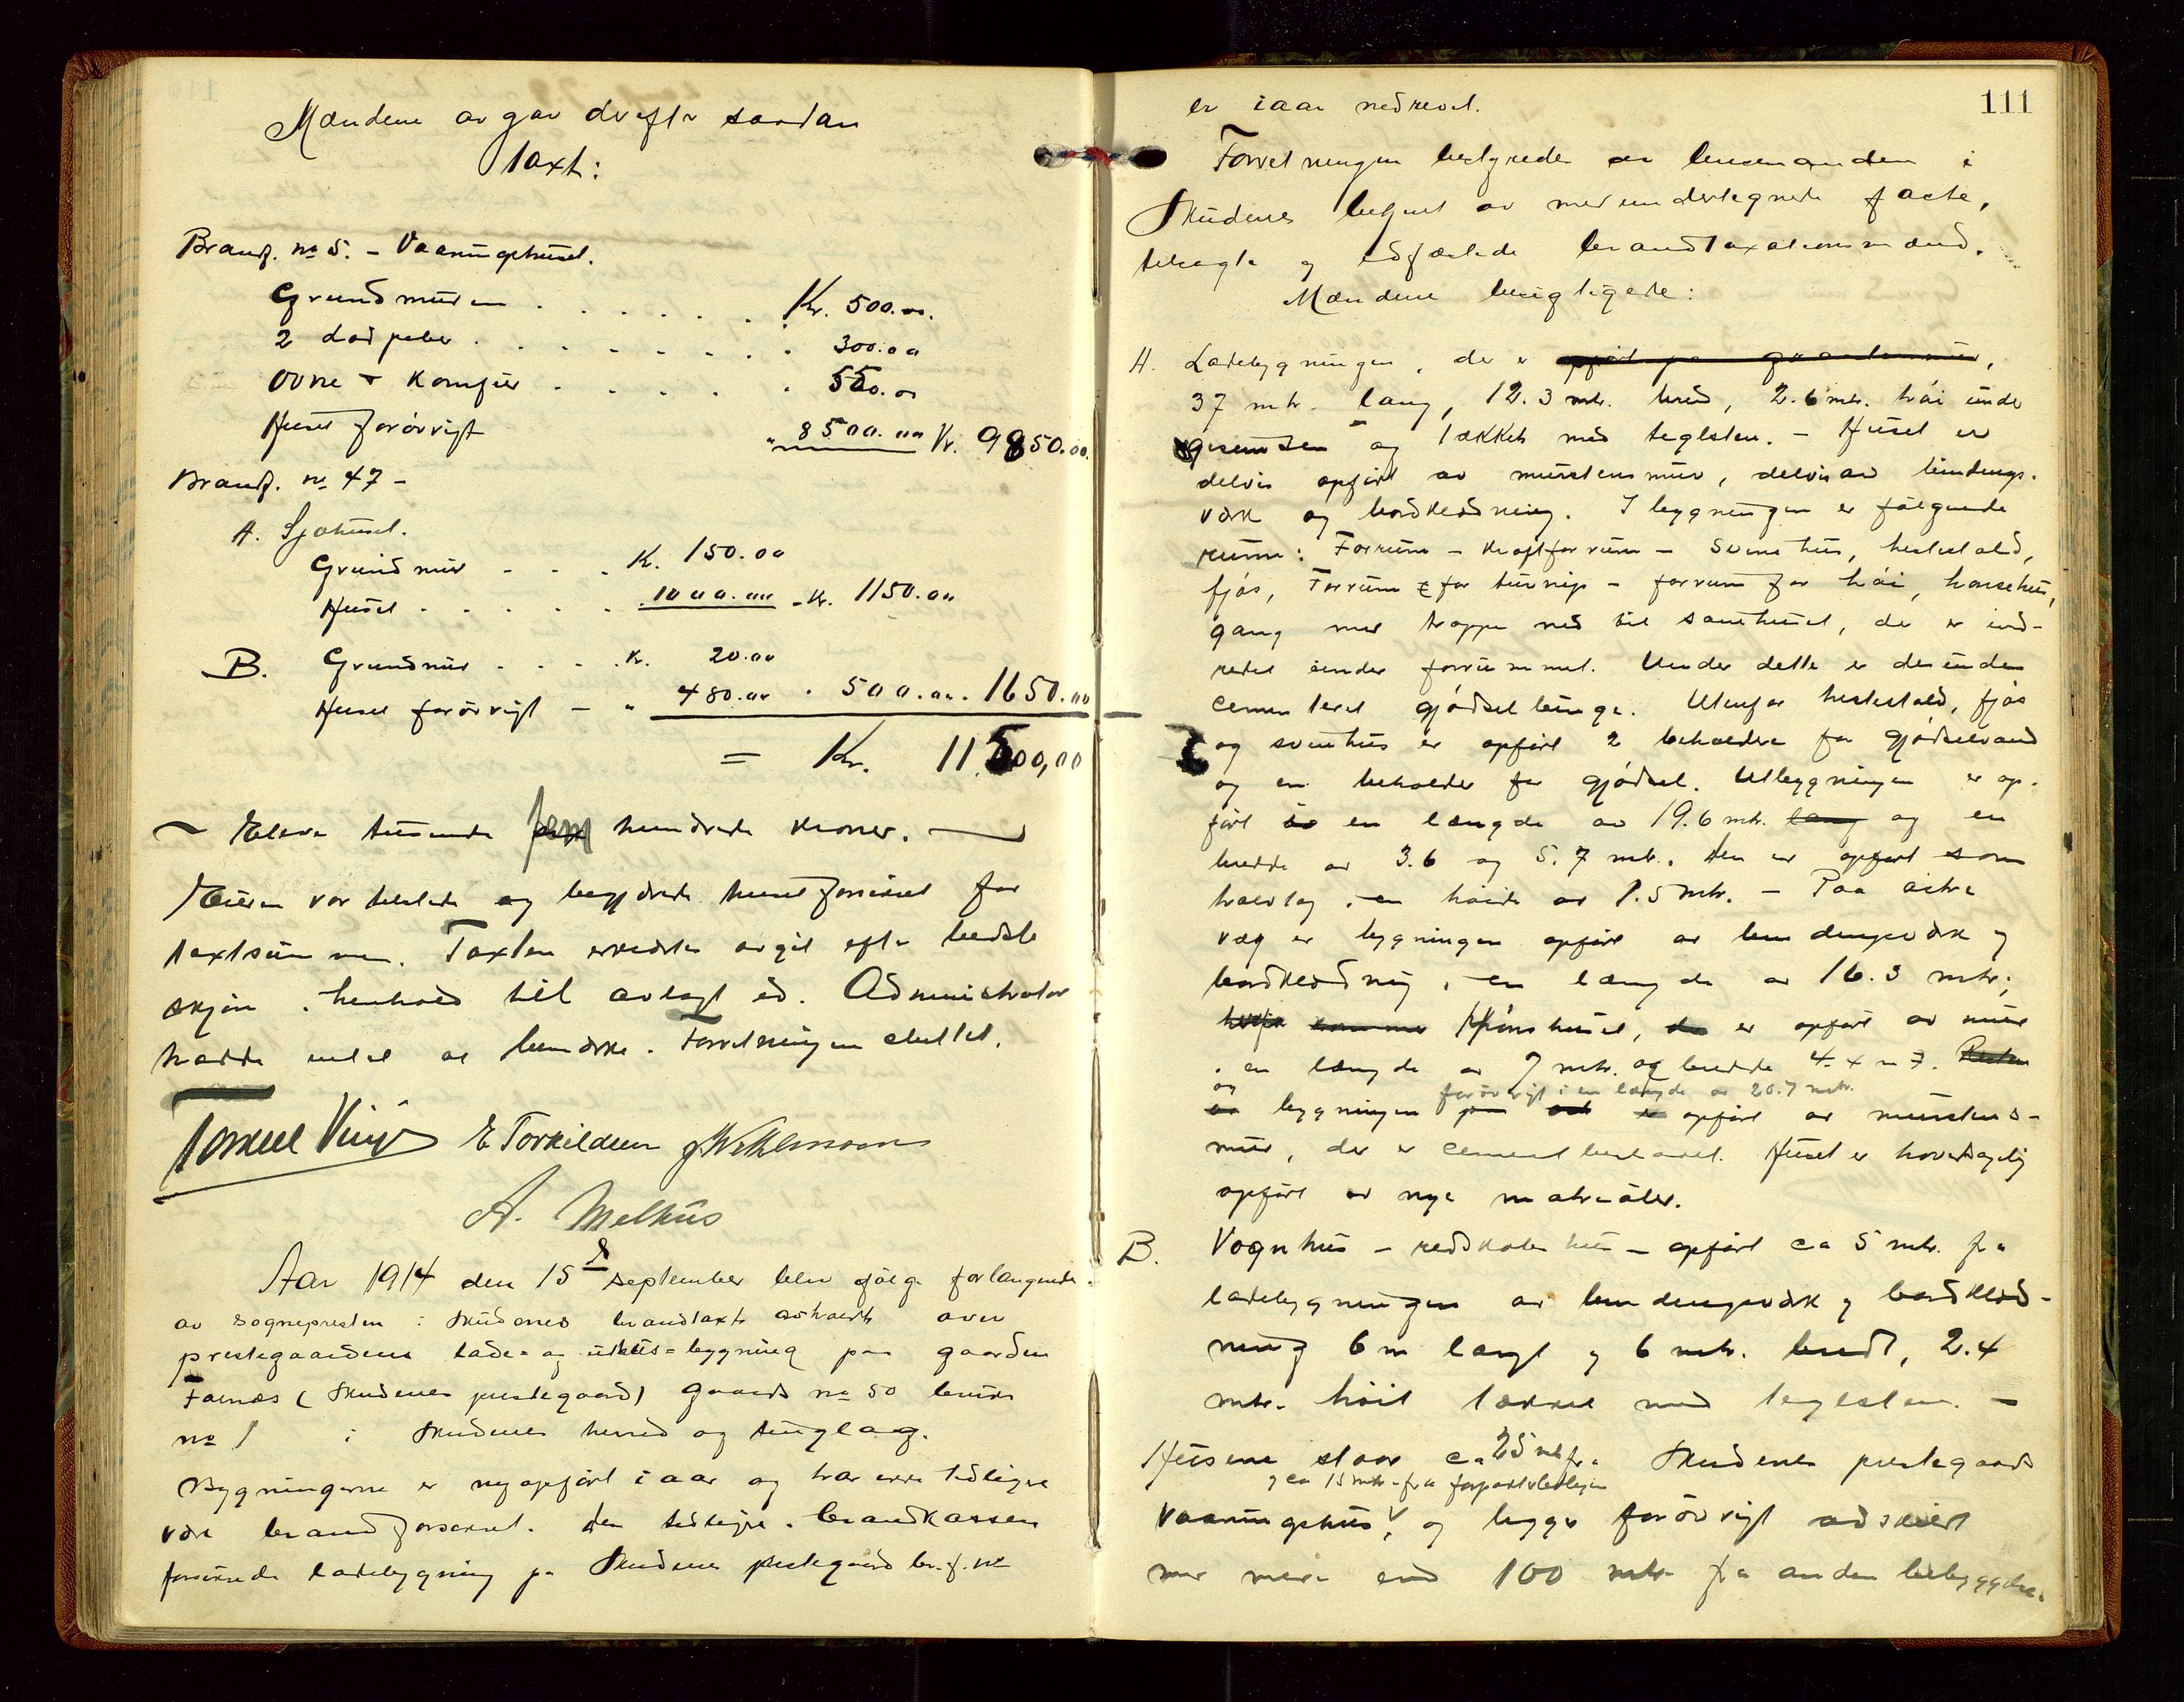 Mændene avgav derefter saadan
taxt:
Brandf. no 5. - Vaaningshuset.
Grundmuren . . . . . . Kr. 500.00.
2 lad piber . . . . . . . . 300.00
Ovne + Komfur . . . . . 550.00
Huset forøvrigt " 8500.00 Kr. 9850.00.
Brandf. no 47 -
A. Sjøhuset.
Grundmur - - . K. 150.00
Huset . . . . . 1000.00 - Kr. 1150.00
B. Grundmur - . . . K. 20.00
Huset forøvrigt - " 480.00 . 500.00. 1650.00
= Kr. 11.500,00
~ Eleve tusende fem hundrede kroner. —
Eieren var tilstede og begjærede huset forsikret for
taxtsummen. Taxten erklærtes avgit efter bedste
skjøn i henhold til avlagt ed. Administrator
hadde intet at bemærke. Forretningen sluttet.
Torkel Vinje E Torkildsen
A. Melhus
Aar 1914 den 15 de september blev ifølge forlangende
av sognepresten i Skudenes brandtaxt avholdt over
prestegaardens lade- og uthus-bygning paa gaarden
Falnæs (Skudenes prestegaard) gaards no 50 bruks
no 1 i Skudenes herred og tinglag.
Bygningerne er nyopført i aar og har ikke tidligere
vært brandforsikret. Den tidligere i brandkassen
forsikrede ladebygning paa Skudenes prestegaard br.f. no
111
er iaar nedrevet.
Forretningen bestyredes av lensmanden i
Skudenes betjent av medundertegnede faste,
tilsagte og edfæstede brandtaxationsmænd.
Mændene besigtigede:
A. Ladebygningen, der er opført paa graastensmur,
37 mtr. lang, 12.3 mtr. bred, 2.6 mtr. høi under
gesimsen og tækket med teglsten. - Huset er
delvis opført av murstensmur, delvis av bindings-
værk og bordklædning. I bygningen er følgende
rum: Forrum - kraftforrum - svinehus, hestestald,
fjøs, Forrum for turnips - forrum for høi, hønsehus,
gang med trappe ned til sauehuset, der er ind-
redet under forrummet. Under dette er desuden
cementeret gjødselbinge. Utenfor hestestald, fjøs
og svinehus er opført 2 beholdere for gjødselvand
og en beholder for gjødsel. Utbygningen er op-
ført i en længde av 19.6 mtr. lang og en
bredde av 3.6 og 5.7 mtr. Den er opført som
halvtag i en høide av 1.5 mtr. - Paa østre
væg er bygningen opført av bindingsværk og
bordklædning i en længde av 16.3 mtr;
Hønshuset, der er opført av mur
i en længde av 7 mtr. og bredde 4.4 m
og bygningen forøvrigt i en længde av 20.7 mtr. er opført av murstens-
mur, der er cementbestøvet. Huset er hovedsagelig
opført av nye materialer.
B. Vognhus - redskabshus - opført ca 5 mtr. fra
ladebygningen av bindingsværk og bordklæd-
ning 6 m langt og 6 mtr. bredt, 2.4
mtr. høit tækket med teglsten. -
Husene staar ca 25 mtr fra Skudenes prestegaards
og ca 15 mtr. fra forpagterboligen
vaaningshus, og ligger forøvrigt adskilt
med mere end 100 mtr fra anden bebyggelse.